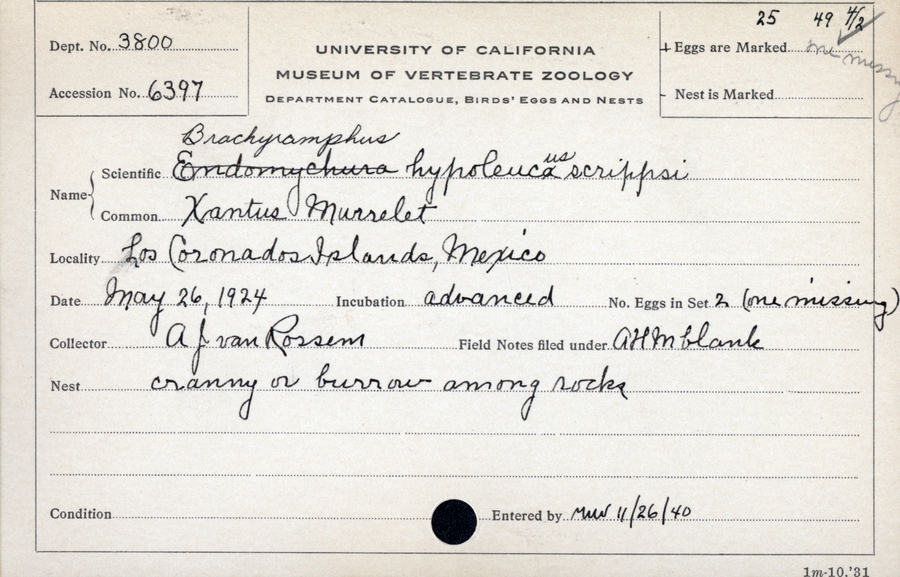 25 49 4/2
Dept. No. 3800
UNIVERSITY OF CALIFORNIA
+ Eggs are Marked one missing
MUSEUM OF VERTEBRATE ZOOLOGY
Accession No. 6397
DEPARTMENT CATALOGUE, BIRDS' EGGS AND NESTS
- Nest is Marked
Brachyramphus
Name Scientific Endomychura hypoleucaus scrippsi
Common Xantus Murrelet
Locality Los Coronados Islands, Mexico
Date May 26, 1924 Incubation advanced No. Eggs in Set 2 (one missing)
Collector A J van Rossem Field Notes filed under AHM blank
Nest cranny or burrow among rocks
Condition Entered by MW 11/26/40
1m-10,'31